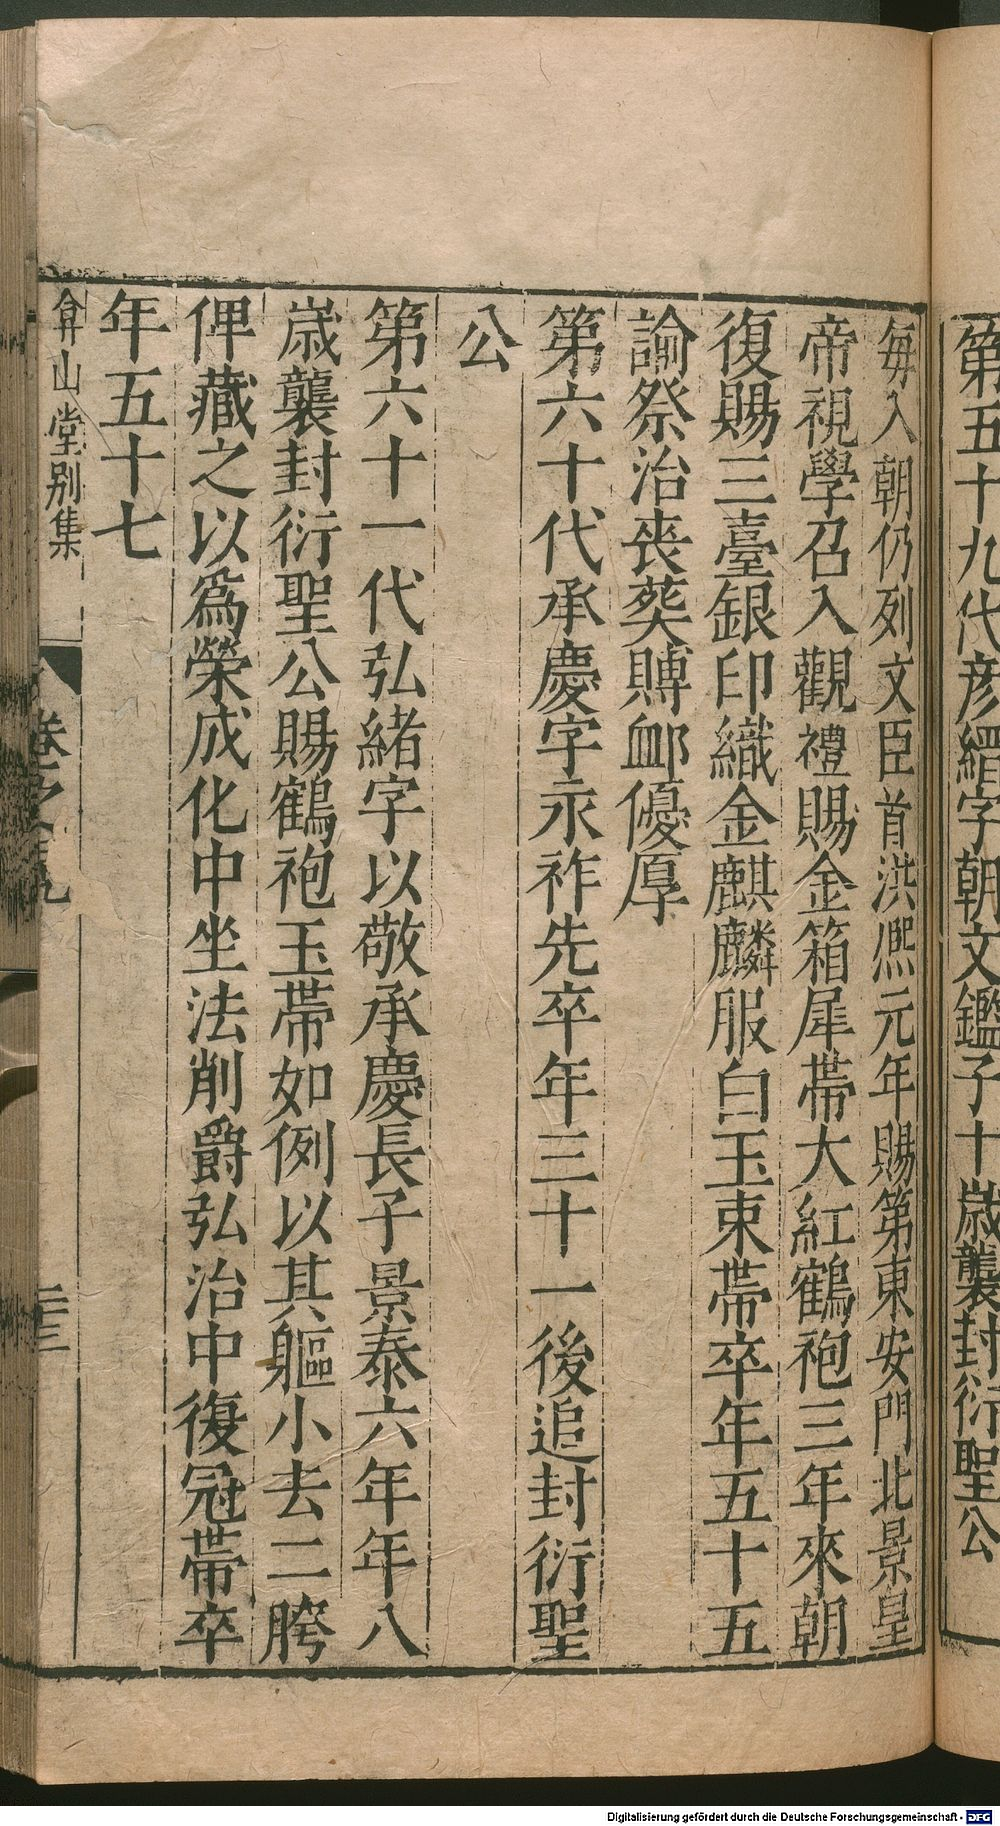 第五十九代彦縉字朝文鑑子十歲襲封衍聖公
每入朝仍列文臣首洪熈元年賜第東安門北景皇
帝視學召入觀禮賜金箱犀帶大紅鶴袍三年來朝
復賜三臺銀印織金麒麟服白玉束帶卒年五十五
諭祭治喪葬賻䘏優厚
第六十代承慶字永祚先卒年三十一後追封衍聖
公
第六十一代弘緒字以敬承慶長子景泰六年年八
歲襲封衍聖公賜鶴袍玉帶如例以其軀小去二胯
俾藏之以爲榮成化中坐法削爵弘治中復冠帶卒
年五十七
弇山堂别集
卷之三九
二十三
Digitalisierung gefördert durch die Deutsche Forschungsgemeinschaft - DFG